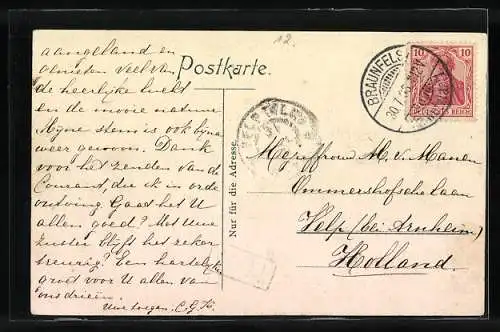 aangeland en
genieten veel van
de heerlijke lucht
en de mooie natuur
Myne stem is ook bijna
weer gewoon. Dank
voor het zenden van de
Courant, die ik in orde
ontving. Gaat het U
allen goed? Met Uwe
zuster blijft het zeker
treurig? Een hartelijke
groet voor U allen van
ons drieën.
12.
Postkarte.
Nur für die Adresse.
BRAUNFELS
30.7.
10 10
DEUTSCHES REICH
Mejuffrouw M. v. Manen
Ommershofschelaan
Velp (bei Arnheim)
Holland.